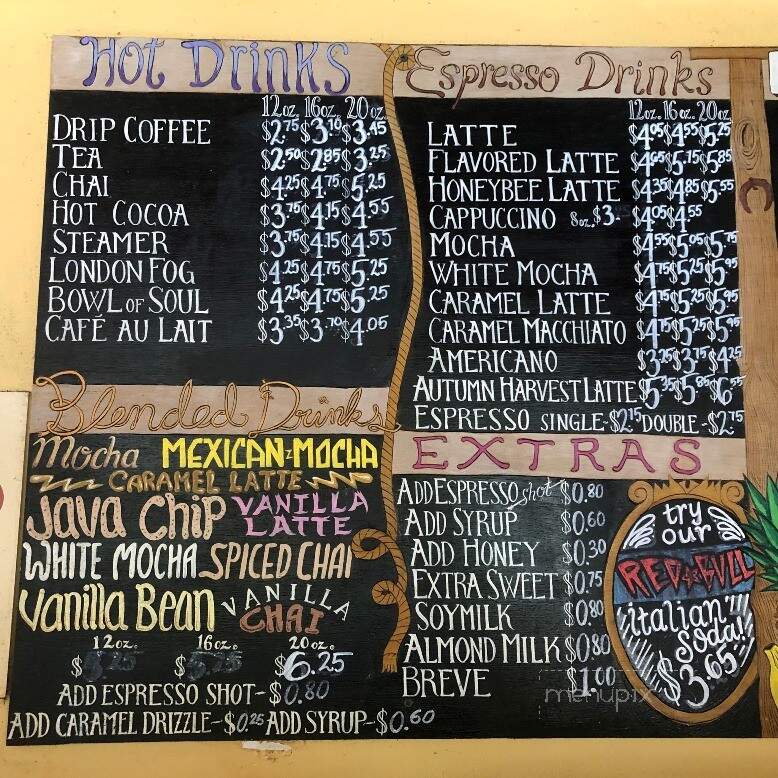 Hot Drinks
12 oz. 16 oz. 20 oz.
DRIP COFFEE $2.75 $3.10 $3.45
TEA $2.50 $2.85 $3.25
CHAI $4.25 $4.75 $5.25
HOT COCOA $3.75 $4.15 $4.55
STEAMER $3.75 $4.15 $4.55
LONDON FOG $4.25 $4.75 $5.25
BOWL OF SOUL $4.25 $4.75 $5.25
CAFÉ AU LAIT $3.35 $3.70 $4.05
Blended Drinks
Mocha MEXICAN MOCHA
CARAMEL LATTE
Java Chip VANILLA LATTE
WHITE MOCHA SPICED CHAI
Vanilla Bean VANILLA CHAI
12 oz. 16 oz. 20 oz.
$5.25 $6.25
ADD ESPRESSO SHOT-$0.80
ADD CARAMEL DRIZZLE-$0.25 ADD SYRUP-$0.60
Espresso Drinks
12 oz. 16 oz. 20 oz.
LATTE $4.05 $4.55 $5.25
FLAVORED LATTE $4.65 $5.15 $5.85
HONEYBEE LATTE $4.35 $4.85 $5.55
CAPPUCCINO 8oz. $3.- $4.05 $4.55
MOCHA $4.55 $5.05 $5.75
WHITE MOCHA $4.75 $5.25 $5.95
CARAMEL LATTE $4.75 $5.25 $5.95
CARAMEL MACCHIATO $4.75 $5.25 $5.95
AMERICANO $3.25 $3.75 $4.25
AUTUMN HARVEST LATTE $5.35 $5.85 $6.55
ESPRESSO SINGLE-$2.15 DOUBLE-$2.75
EXTRAS
ADD ESPRESSO shot $0.80
ADD SYRUP $0.60
ADD HONEY $0.30
EXTRA SWEET $0.75
SOYMILK $0.80
ALMOND MILK $0.80
BREVE $1.00
try
our
RED BULL
italian
Soda!
$3.65
menupix